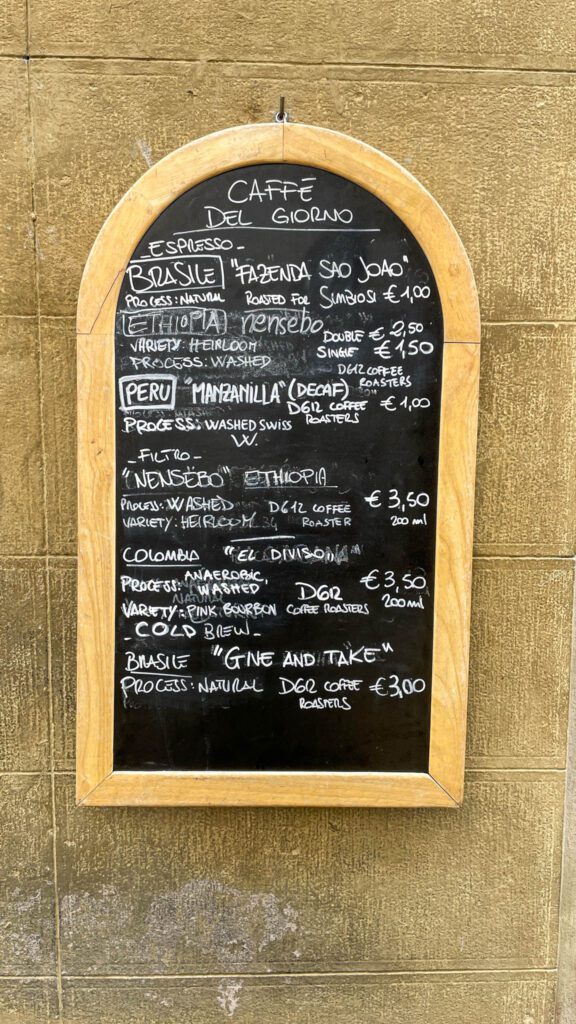 CAFFÈ
DEL GIORNO
_ESPRESSO_
BRASILE "FAZENDA SAO JOAO"
PROCESS: NATURAL ROASTED FOR SIMBIOSI € 1,00
ETHIOPIA nensebo
DOUBLE € 2,50
VARIETY: HEIRLOOM SINGLE € 1,50
PROCESS: WASHED D612 COFFEE
ROASTERS
PERU "MANZANILLA" (DECAF)
D612 COFFEE € 1,00
ROASTERS
PROCESS: WASHED SWISS
W.
_FILTRO_
"NENSEBO" ETHIOPIA
PROCESS: WASHED D612 COFFEE € 3,50
VARIETY: HEIRLOOM ROASTER 200 ml
COLOMBIA "EL DIVISO"
ANAEROBIC,
PROCESS: WASHED D612 € 3,50
VARIETY: PINK BOURBON COFFEE ROASTERS 200 ml
_COLD BREW_
BRASILE "GIVE AND TAKE"
PROCESS: NATURAL D612 COFFEE € 3,00
ROASTERS